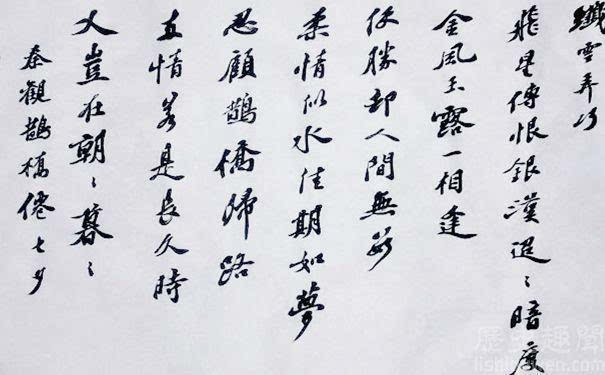 纖雲弄巧
飛星傳恨銀漢迢々暗度
金風玉露一相逢
便勝却人間無數
柔情似水佳期如夢
忍顧鵲橋歸路
兩情若是長久時
又豈在朝々暮々
秦觀鵲橋僊七夕
歷史趣聞